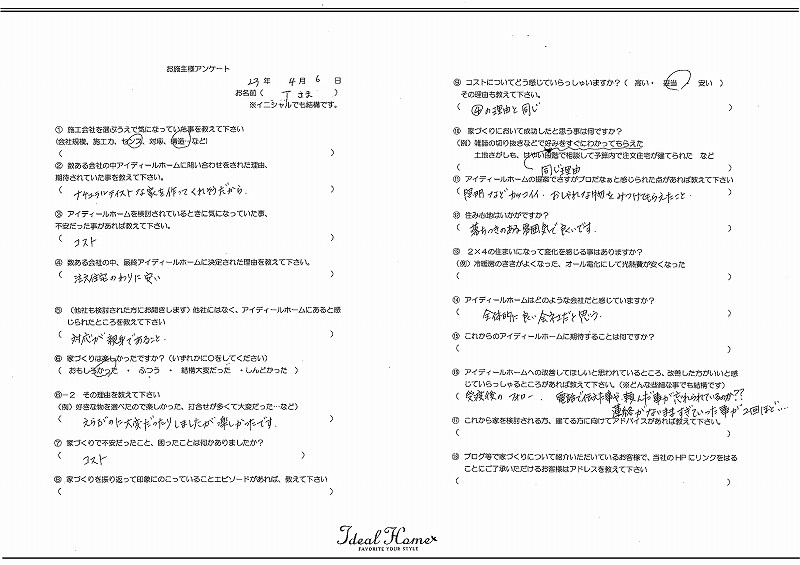 お施主様アンケート
23年 4月 6日
お名前 ( Tさま )
※イニシャルでも結構です。
① 施工会社を選ぶうえで気になっていた事を教えて下さい
(会社規模、施工力、センス、対応、構造…など)
(                    )
② 数ある会社の中アイディールホームに問い合わせをされた理由、
期待されていた事を教えて下さい。
( ナチュラルテイストな家を作ってくれそうだから。 )
③ アイディールホームを検討されているときに気になっていた事、
不安だった事があれば教えて下さい。
( コスト )
④ 数ある会社の中、最終アイディールホームに決定された理由を教えて下さい。
( 注文住宅のわりに安い )
⑤ (他社も検討された方にお聞きします) 他社にはなく、アイディールホームにあると感
じられたところを教えて下さい
( 対応が親身であること。 )
⑥ 家づくりは楽しかったですか? (いずれかに○をしてください)
( おもしろかった ・ ふつう ・ 結構大変だった ・しんどかった )
⑥-2 その理由を教えて下さい
(例) 好きな物を選べたので楽しかった、打合せが多くて大変だった…など)
( えらぶのに大変だったりしましたが楽しかったです。 )
⑦ 家づくりで不安だったこと、困ったことは何かありましたか?
( コスト )
⑧ 家づくりを振り返って印象にのこっていることエピソードがあれば、教えて下さい
(                    )
⑨ コストについてどう感じていらっしゃいますか? ( 高い・ 妥当 ・ 安い )
その理由も教えて下さい。
( ④の理由と同じ )
⑩ 家づくりにおいて成功したと思う事は何ですか?
(例) 雑誌の切り抜きなどで好みをすぐにわかってもらえた
土地さがしも、はやい段階で相談して予算内で注文住宅が建てられた など
( 同じ理由 )
⑪ アイディールホームの提案でさすがプロだなぁと感じられた点があれば教えて下さい
( 照明などカッコイイ、おしゃれな物をみつけてもらえたこと。 )
⑫ 住み心地はいかがですか?
( 落ちつきのある雰囲気で良いです。 )
⑬ 2×4の住まいになって変化を感じる事はありますか?
(例) 冷暖房のききがよくなった、オール電化にして光熱費が安くなった
(                    )
⑭ アイディールホームはどのような会社だと感じていますか?
( 全体的に良い会社だと思う。 )
⑮ これからのアイディールホームに期待することは何ですか?
(                    )
⑯ アイディールホームへの改善してほしいと思われているところ、改善した方がいいと感
じていらっしゃるところがあれば教えて下さい。(※どんな些細な事でも結構です)
( 完成後のフォロー。 電話で伝えた事や頼んだ事が忘れられているのか??
連絡がないまますぎていった事が2回ほど…. )
⑰ これから家を検討される方、建てる方に向けてアドバイスがあれば教えて下さい。
(                    )
⑱ ブログ等で家づくりについて紹介いただいているお客様で、当社のHPにリンクをはる
ことにご了承いただけるお客様はアドレスを教えて下さい
(                    )
Ideal Home
FAVORITE YOUR STYLE